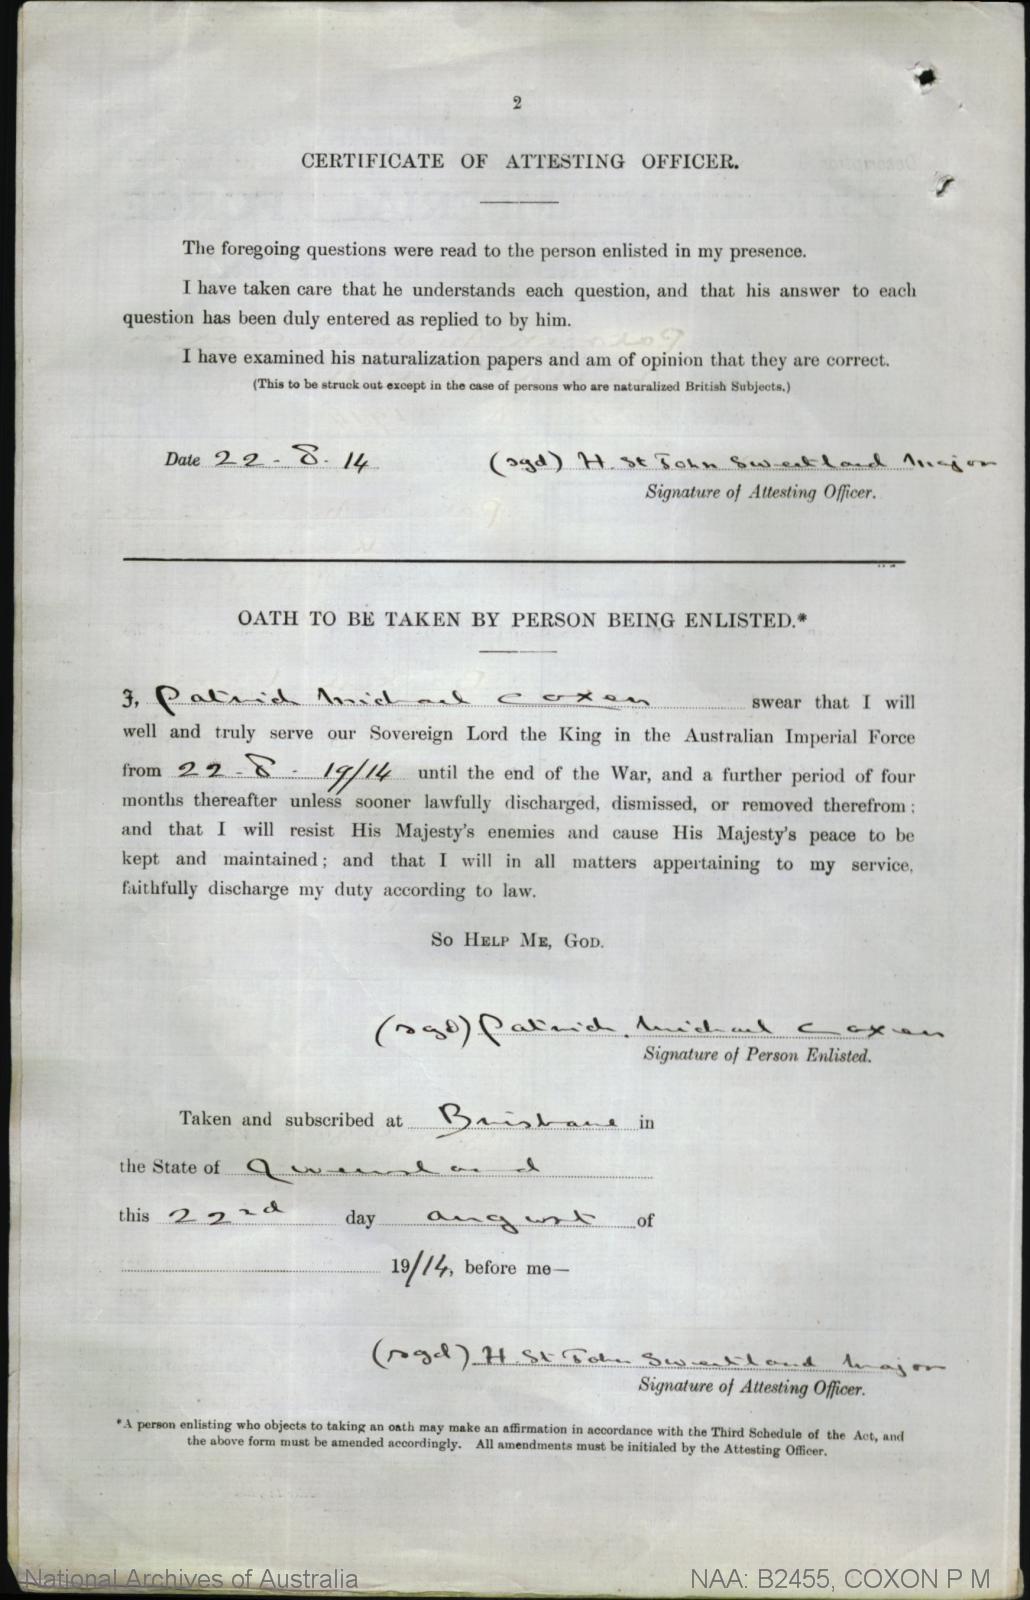 2
CERTIFICATE OF ATTESTING OFFICER.
The foregoing questions were read to the person enlisted in my presence.
I have taken care that he understands each question, and that his answer to each
question has been duly entered as replied to by him.
I have examined his naturalization papers and am of opinion that they are correct.
(This to be struck out except in the case of persons who are naturalized British Subjects.)
Date 22-8-14 (sgd) H. St John Sweetland Major
Signature of Attesting Officer.
OATH TO BE TAKEN BY PERSON BEING ENLISTED.*
I, Patrick Michael Coxen swear that I will
well and truly serve our Sovereign Lord the King in the Australian Imperial Force
from 22-8-19/14 until the end of the War, and a further period of four
months thereafter unless sooner lawfully discharged, dismissed, or removed therefrom;
and that I will resist His Majesty's enemies and cause His Majesty's peace to be
kept and maintained; and that I will in all matters appertaining to my service,
faithfully discharge my duty according to law.
SO HELP ME, GOD.
(sgd) Patrick Michael Coxen
Signature of Person Enlisted.
Taken and subscribed at Brisbane in
the State of Queensland
this 22nd day august of
19/14, before me—
(sgd) H. St John Sweetland Major
Signature of Attesting Officer.
*A person enlisting who objects to taking an oath may make an affirmation in accordance with the Third Schedule of the Act, and
the above form must be amended accordingly. All amendments must be initialed by the Attesting Officer.
National Archives of Australia NAA: B2455, COXON P M